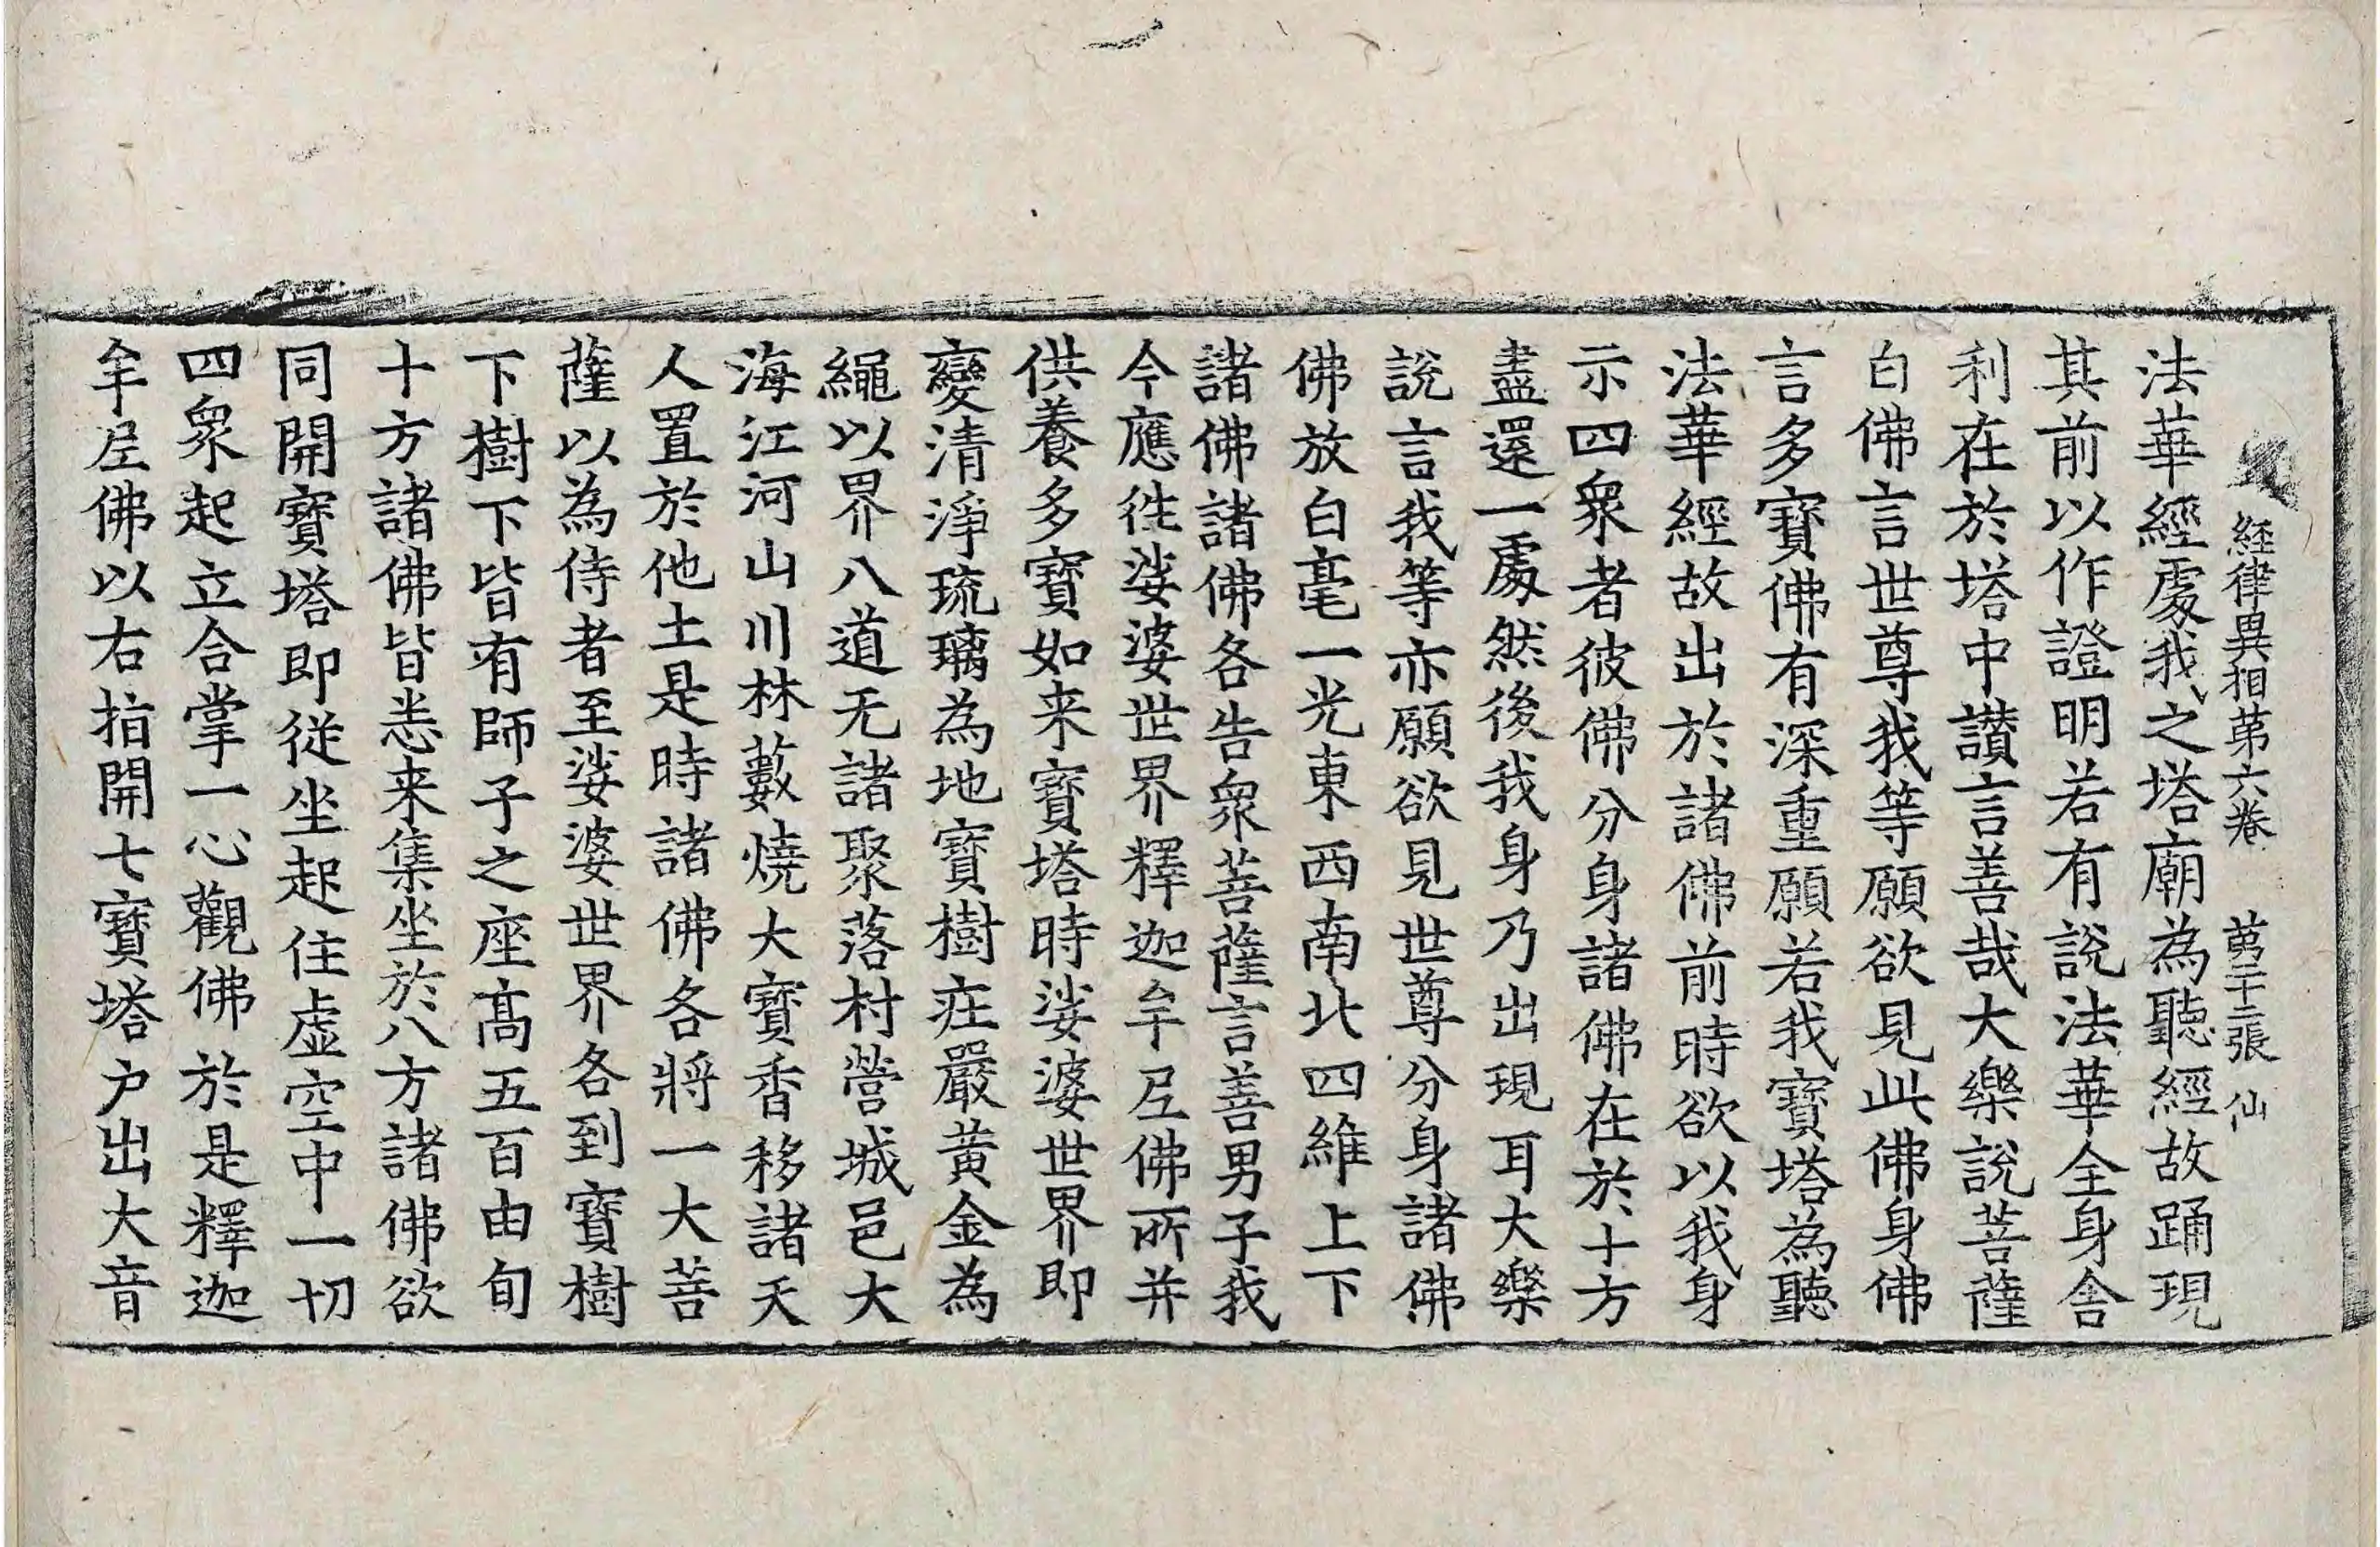 経律異相第六卷　第二十三張　仙
法華經處我之塔廟為聽經故踊現
其前以作證明若有說法華全身舎
利在於塔中讃言善哉大樂說菩薩
白佛言世尊我等願欲見此佛身佛
言多寶佛有深重願若我寶塔為聽
法華經故出於諸佛前時欲以我身
示四衆者彼佛分身諸佛在於十方
盡還一處然後我身乃出現耳大樂
說言我等亦願欲見世尊分身諸佛
佛放白毫一光東西南北四維上下
諸佛諸佛各告衆菩薩言善男子我
今應徃娑婆世界釋迦牟尼佛所并
供養多寶如来寶塔時娑婆世界即
變清淨琉璃為地寶樹庄嚴黄金為
繩以界八道无諸聚落村營城邑大
海江河山川林藪燒大寶香移諸天
人置於他土是時諸佛各將一大菩
薩以為侍者至娑婆世界各到寶樹
下樹下皆有師子之座髙五百由旬
十方諸佛皆悉来集坐於八方諸佛欲
同開寶塔即従坐起住虚空中一切
四衆起立合掌一心觀佛於是釋迦
牟尼佛以右指開七寶塔户出大音